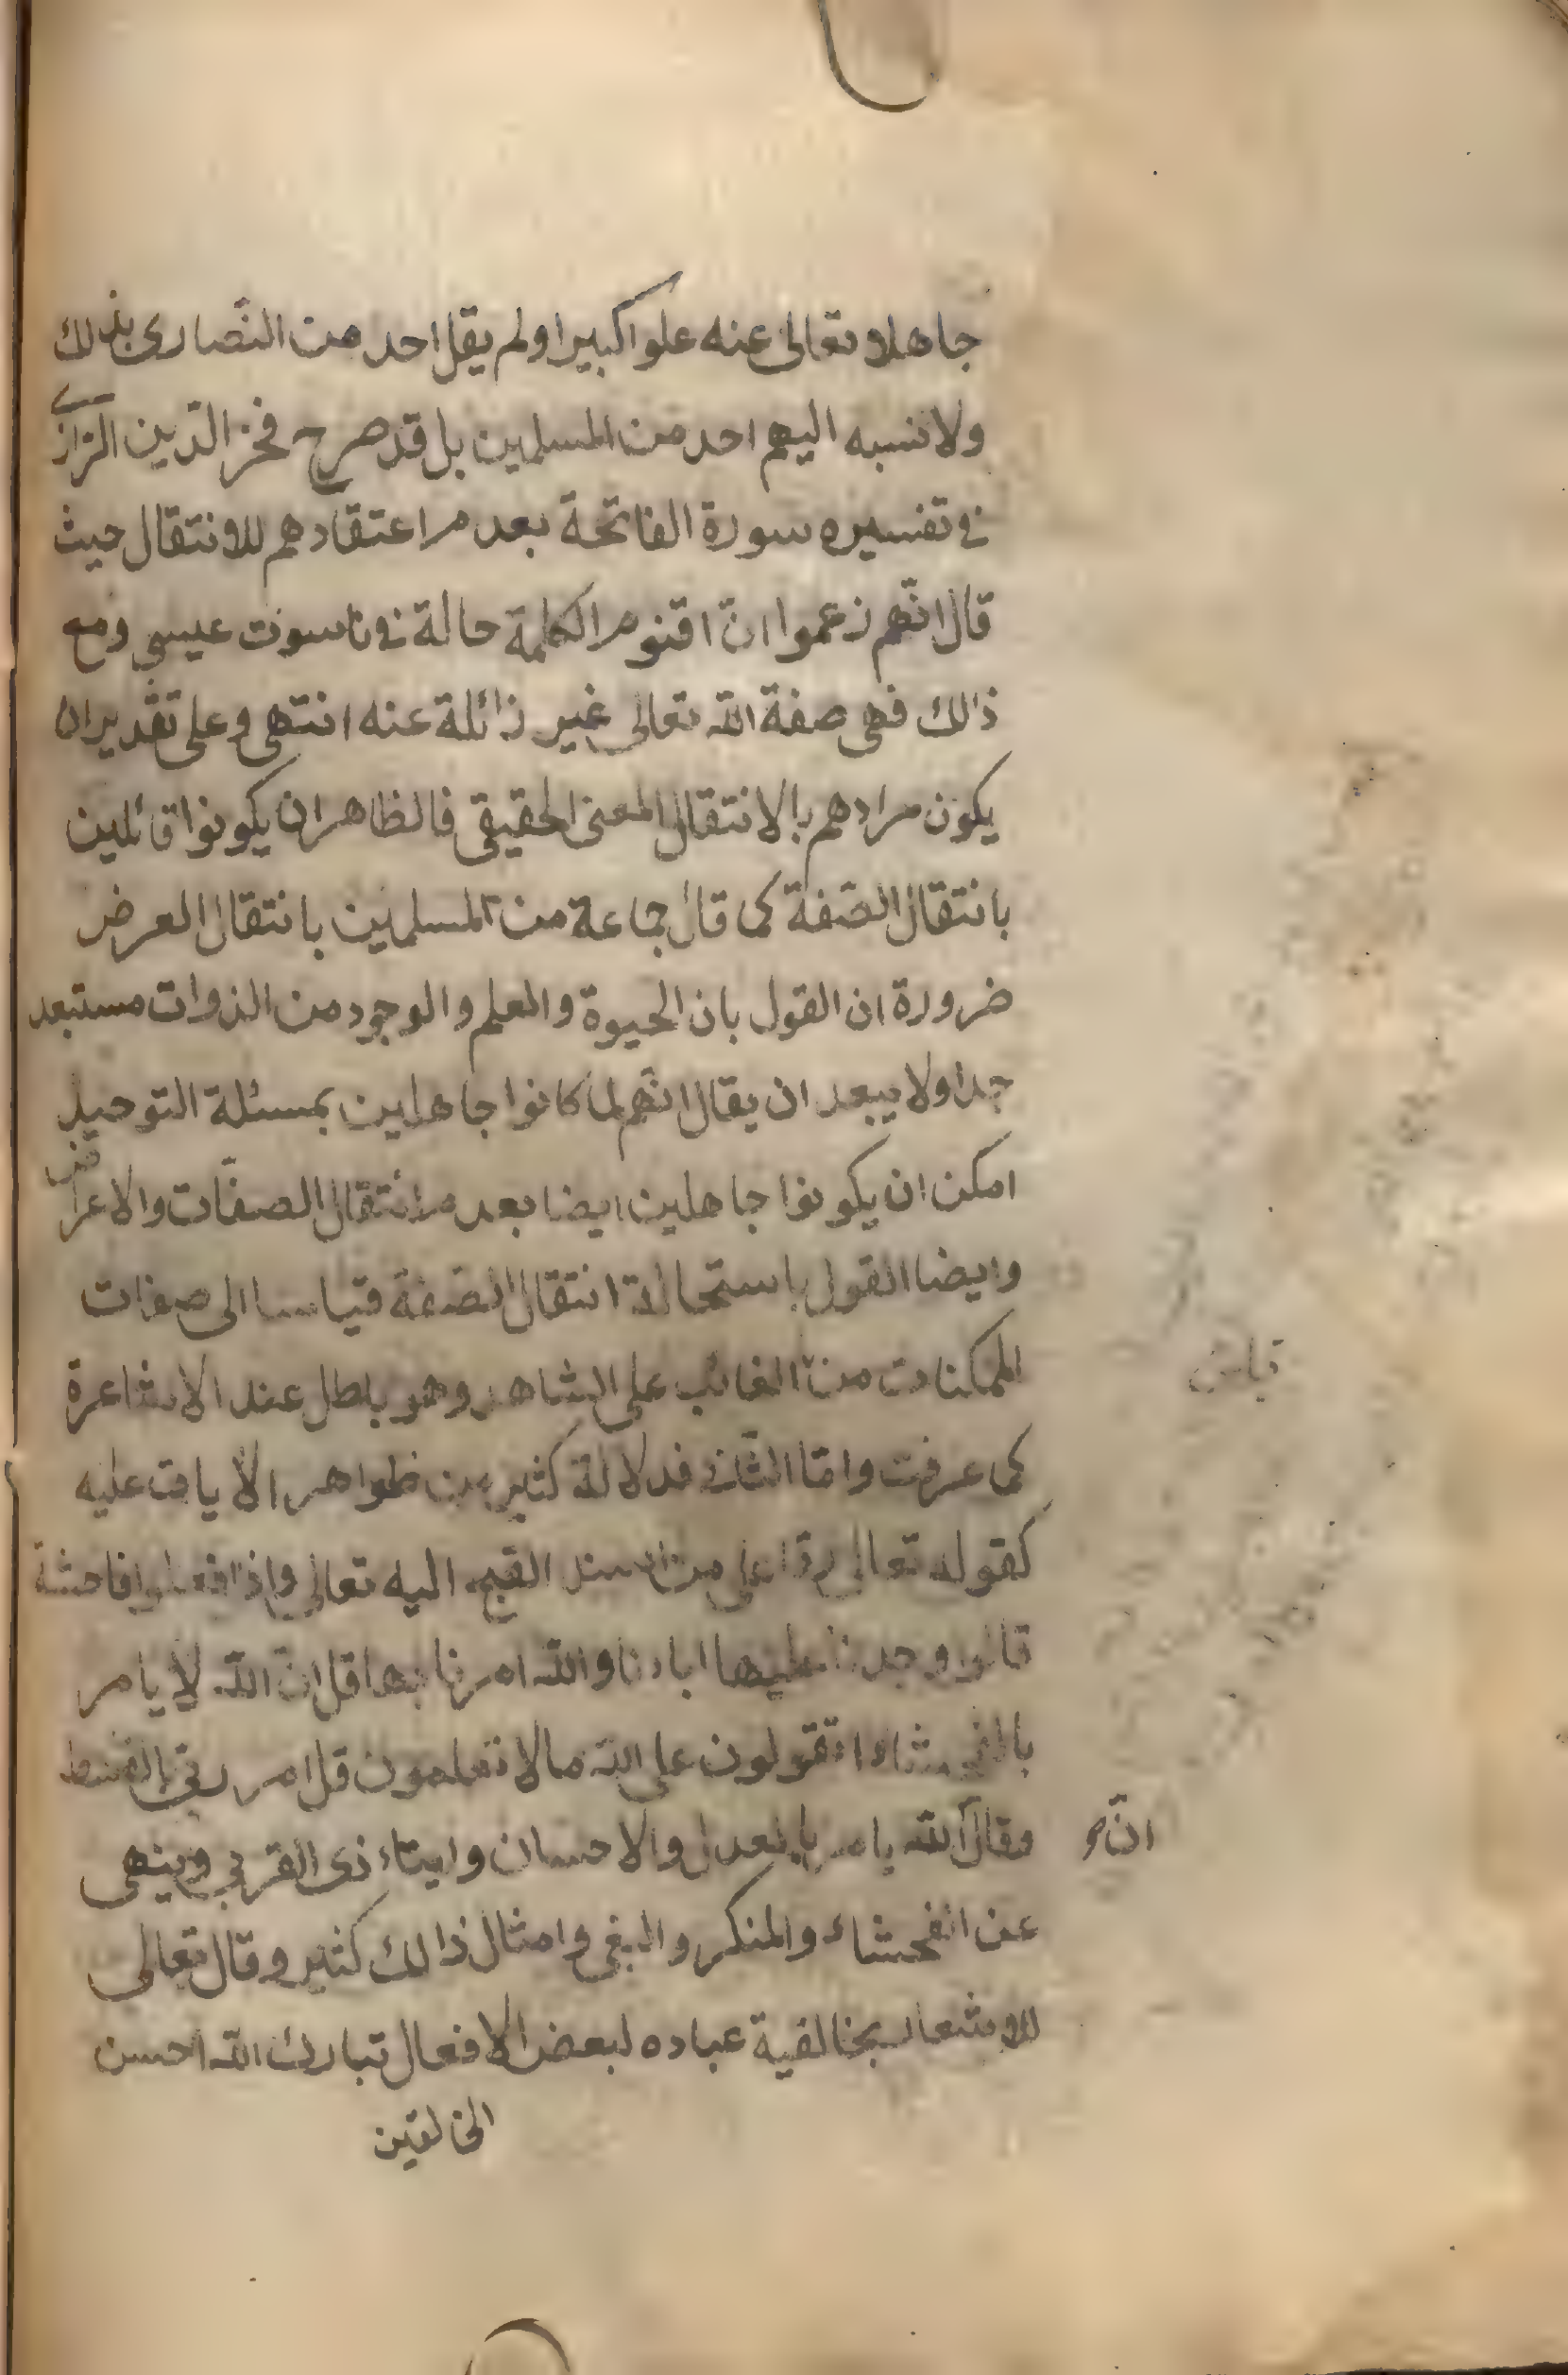 جاهلا تعالى عنه علوا كبيرا ولم يقل احد من النّصارى بذلك
ولا نسبه اليهم احد من المسلمين بل قد صرح فخر الدّين الرّازى
فى تفسيره سورة الفاتحة بعدم اعتقادهم للانتقال حيث
قال انّهم زعموا انّ اقنوم الكلمة حالة فى ناسوت عيسى ومع
ذالك فهى صفة الله تعالى غير زائلة عنه انتهى وعلى تقدير ان
يكون مرادهم بالانتقال المعنى الحقيقى فالظاهر ان يكونوا قائلين
بانتقال الصّفة كما قال جماعة من المسلمين بانتقال العرض
ضرورة ان القول بان الحيوة والعلم والوجود من الذوات مستبعد
جدا ولا يبعد ان يقال انّهم لما كانوا جاهلين بمسئلة التوحيد
امكن ان يكونوا جاهلين ايضا بعدم انتقال الصفات والاعراض
وايضا القول باستحالة انتقال الصّفة قياسا الى صفات
الممكنات من الغائب على الشاهد وهو باطل عند الاشاعرة
قياس
كما عرفت وامّا الثّانى فدلالة كثير من ظواهر الايات عليه
كقوله تعالى ردّا على من اسند القبح اليه تعالى واذا فعلوا فاحشة
قالوا وجدنا عليها اباءنا والله امرنا بها قل انّ الله لا يامر
بالفحشاء اتقولون على الله ما لا تعلمون قل امر ربّى بالقسط
وقال الله يامر بالعدل والاحسان وايتاء ذى القربى وينهى
انّ
عن الفحشاء والمنكر والبغى وامثال ذالك كثير وقال تعالى
للاشعار بخالقية عباده لبعض الافعال تبارك الله احسن
الخالقين